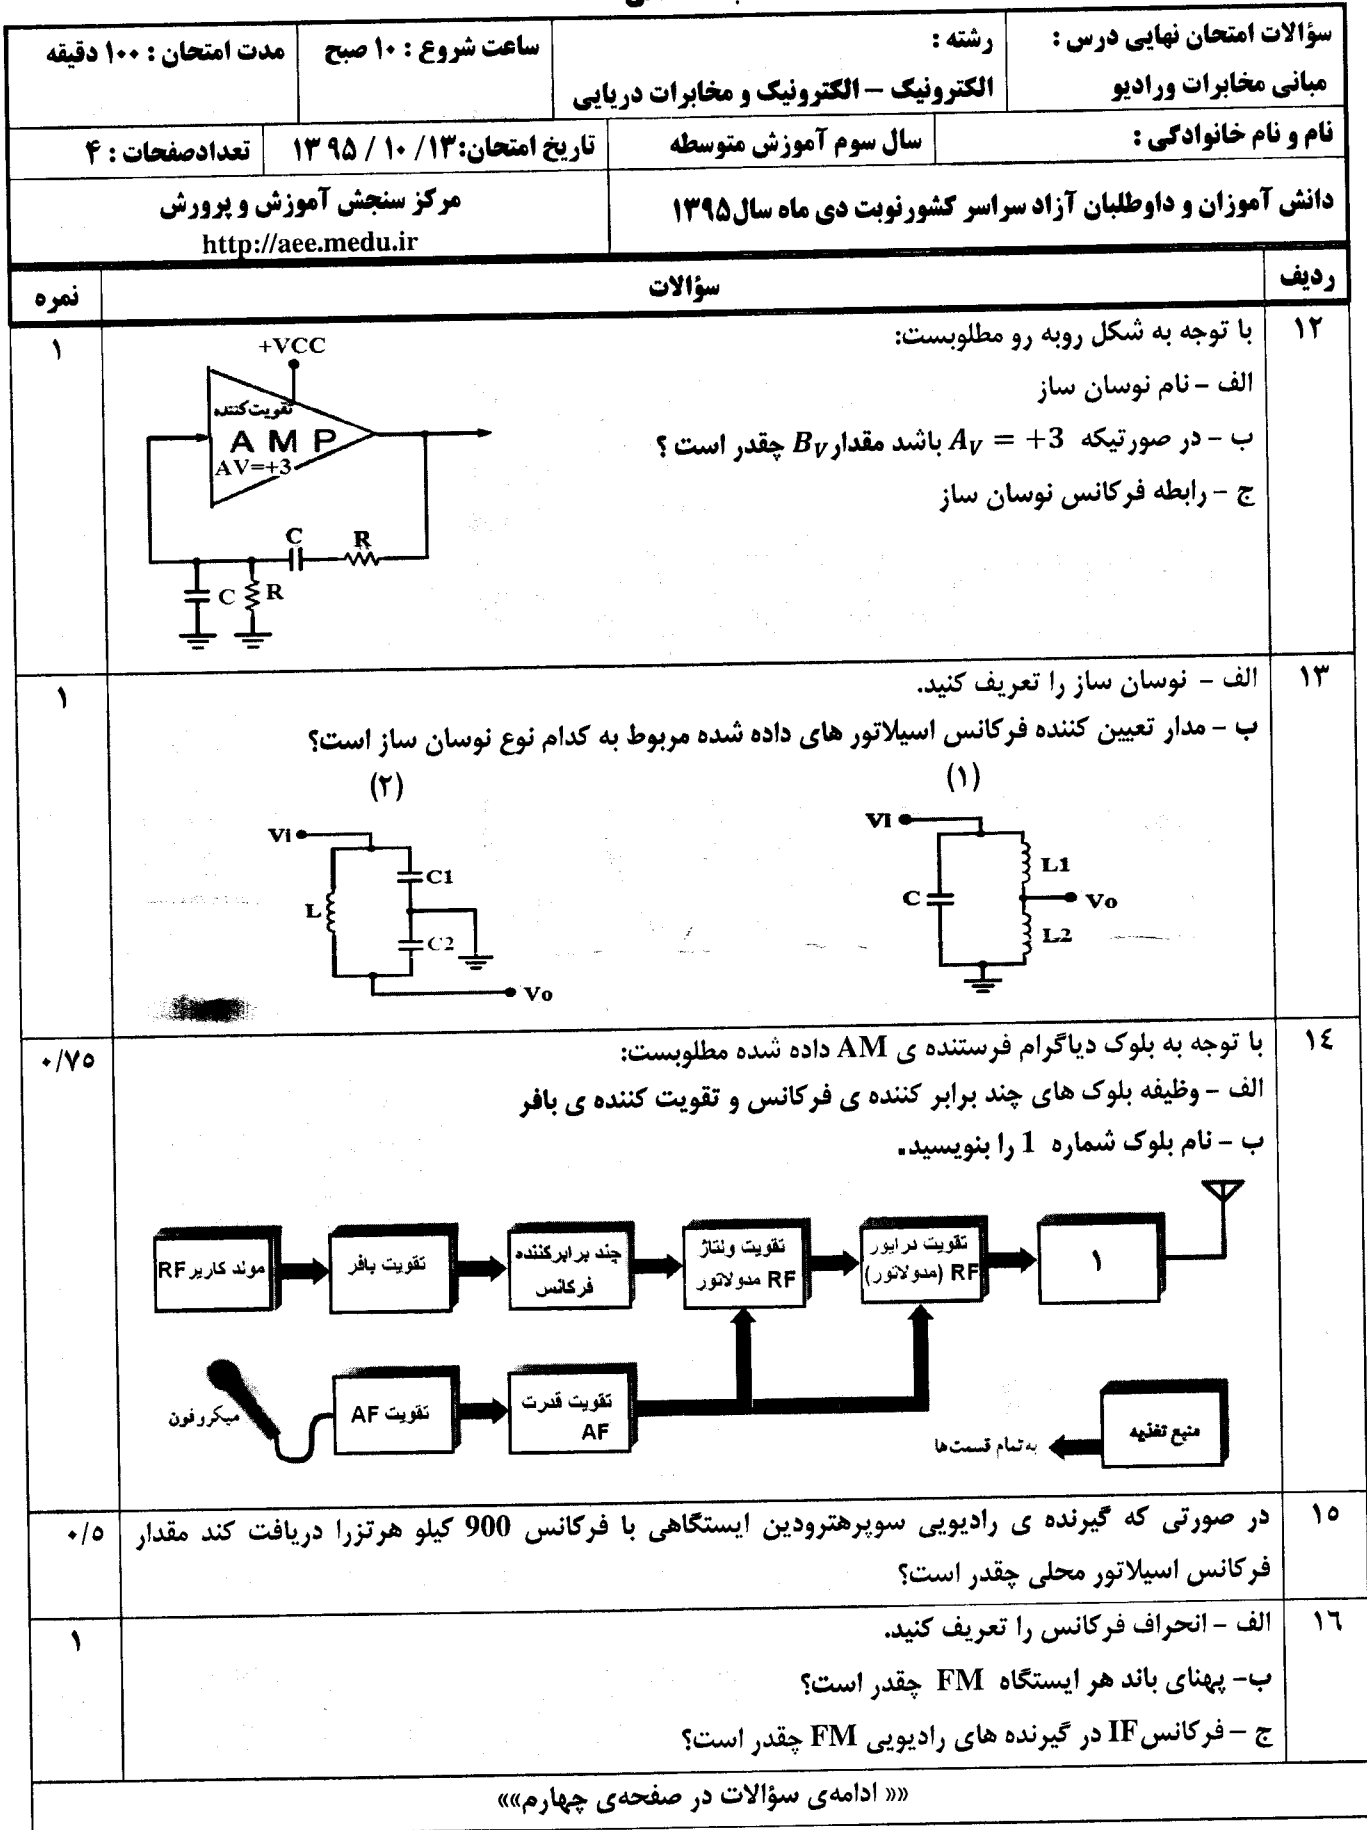 سؤالات امتحان نهایی درس :
مبانی مخابرات ورادیو
رشته :
الکترونیک – الکترونیک و مخابرات دریایی
ساعت شروع : ۱۰ صبح
مدت امتحان : ۱۰۰ دقیقه
نام و نام خانوادگی :
سال سوم آموزش متوسطه
تاریخ امتحان: ۱۳ / ۱۰ / ۹۵ ۱۳
تعدادصفحات : ۴
دانش آموزان و داوطلبان آزاد سراسر کشورنوبت دی ماه سال۱۳۹۵
مرکز سنجش آموزش و پرورش
http://aee.medu.ir
ردیف
سؤالات
نمره
۱۲
با توجه به شکل روبه رو مطلوبست:
الف – نام نوسان ساز
ب – در صورتیکه A_V = +3 باشد مقدار B_V چقدر است ؟
ج – رابطه فرکانس نوسان ساز
۱
+VCC
تقویت‌کننده
AMP
AV=+3
C
R
C
R
۱۳
الف – نوسان ساز را تعریف کنید.
ب – مدار تعیین کننده فرکانس اسیلاتور های داده شده مربوط به کدام نوع نوسان ساز است؟
۱
(۱)
Vi
L1
C
Vo
L2
(۲)
Vi
C1
L
C2
Vo
۱٤
با توجه به بلوک دیاگرام فرستنده ی AM داده شده مطلوبست:
الف – وظیفه بلوک های چند برابر کننده ی فرکانس و تقویت کننده ی بافر
ب – نام بلوک شماره 1 را بنویسید.
۰/۷۵
مولد کاریر RF
تقویت بافر
چند برابرکننده
فرکانس
تقویت ولتاژ
RF مدولاتور
تقویت درایور
RF (مدولاتور)
۱
میکروفون
تقویت AF
تقویت قدرت
AF
به تمام قسمت‌ها
منبع تغذیه
۱٥
در صورتی که گیرنده ی رادیویی سوپرهترودین ایستگاهی با فرکانس 900 کیلو هرتزرا دریافت کند مقدار
فرکانس اسیلاتور محلی چقدر است؟
۰/۵
۱٦
الف – انحراف فرکانس را تعریف کنید.
ب– پهنای باند هر ایستگاه FM چقدر است؟
ج – فرکانس IF در گیرنده های رادیویی FM چقدر است؟
۱
«« ادامه‌ی سؤالات در صفحه‌ی چهارم»»